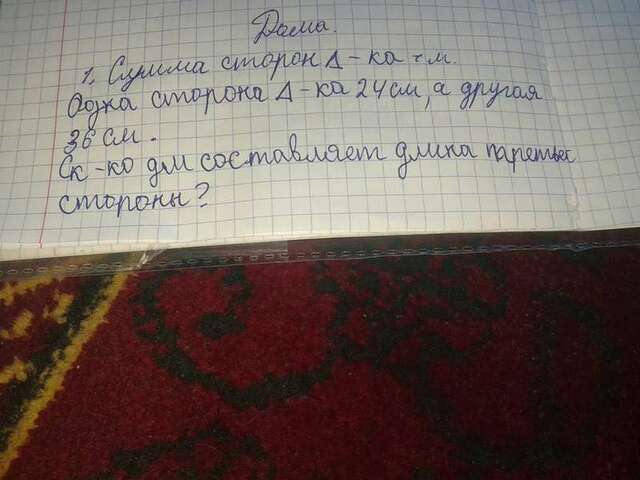 Дома.
1. Сумма сторон Δ-ка м.
Одна сторона Δ-ка 24 см, а другая
36 см.
Ск-ко дм составляет длина третьей
стороны?